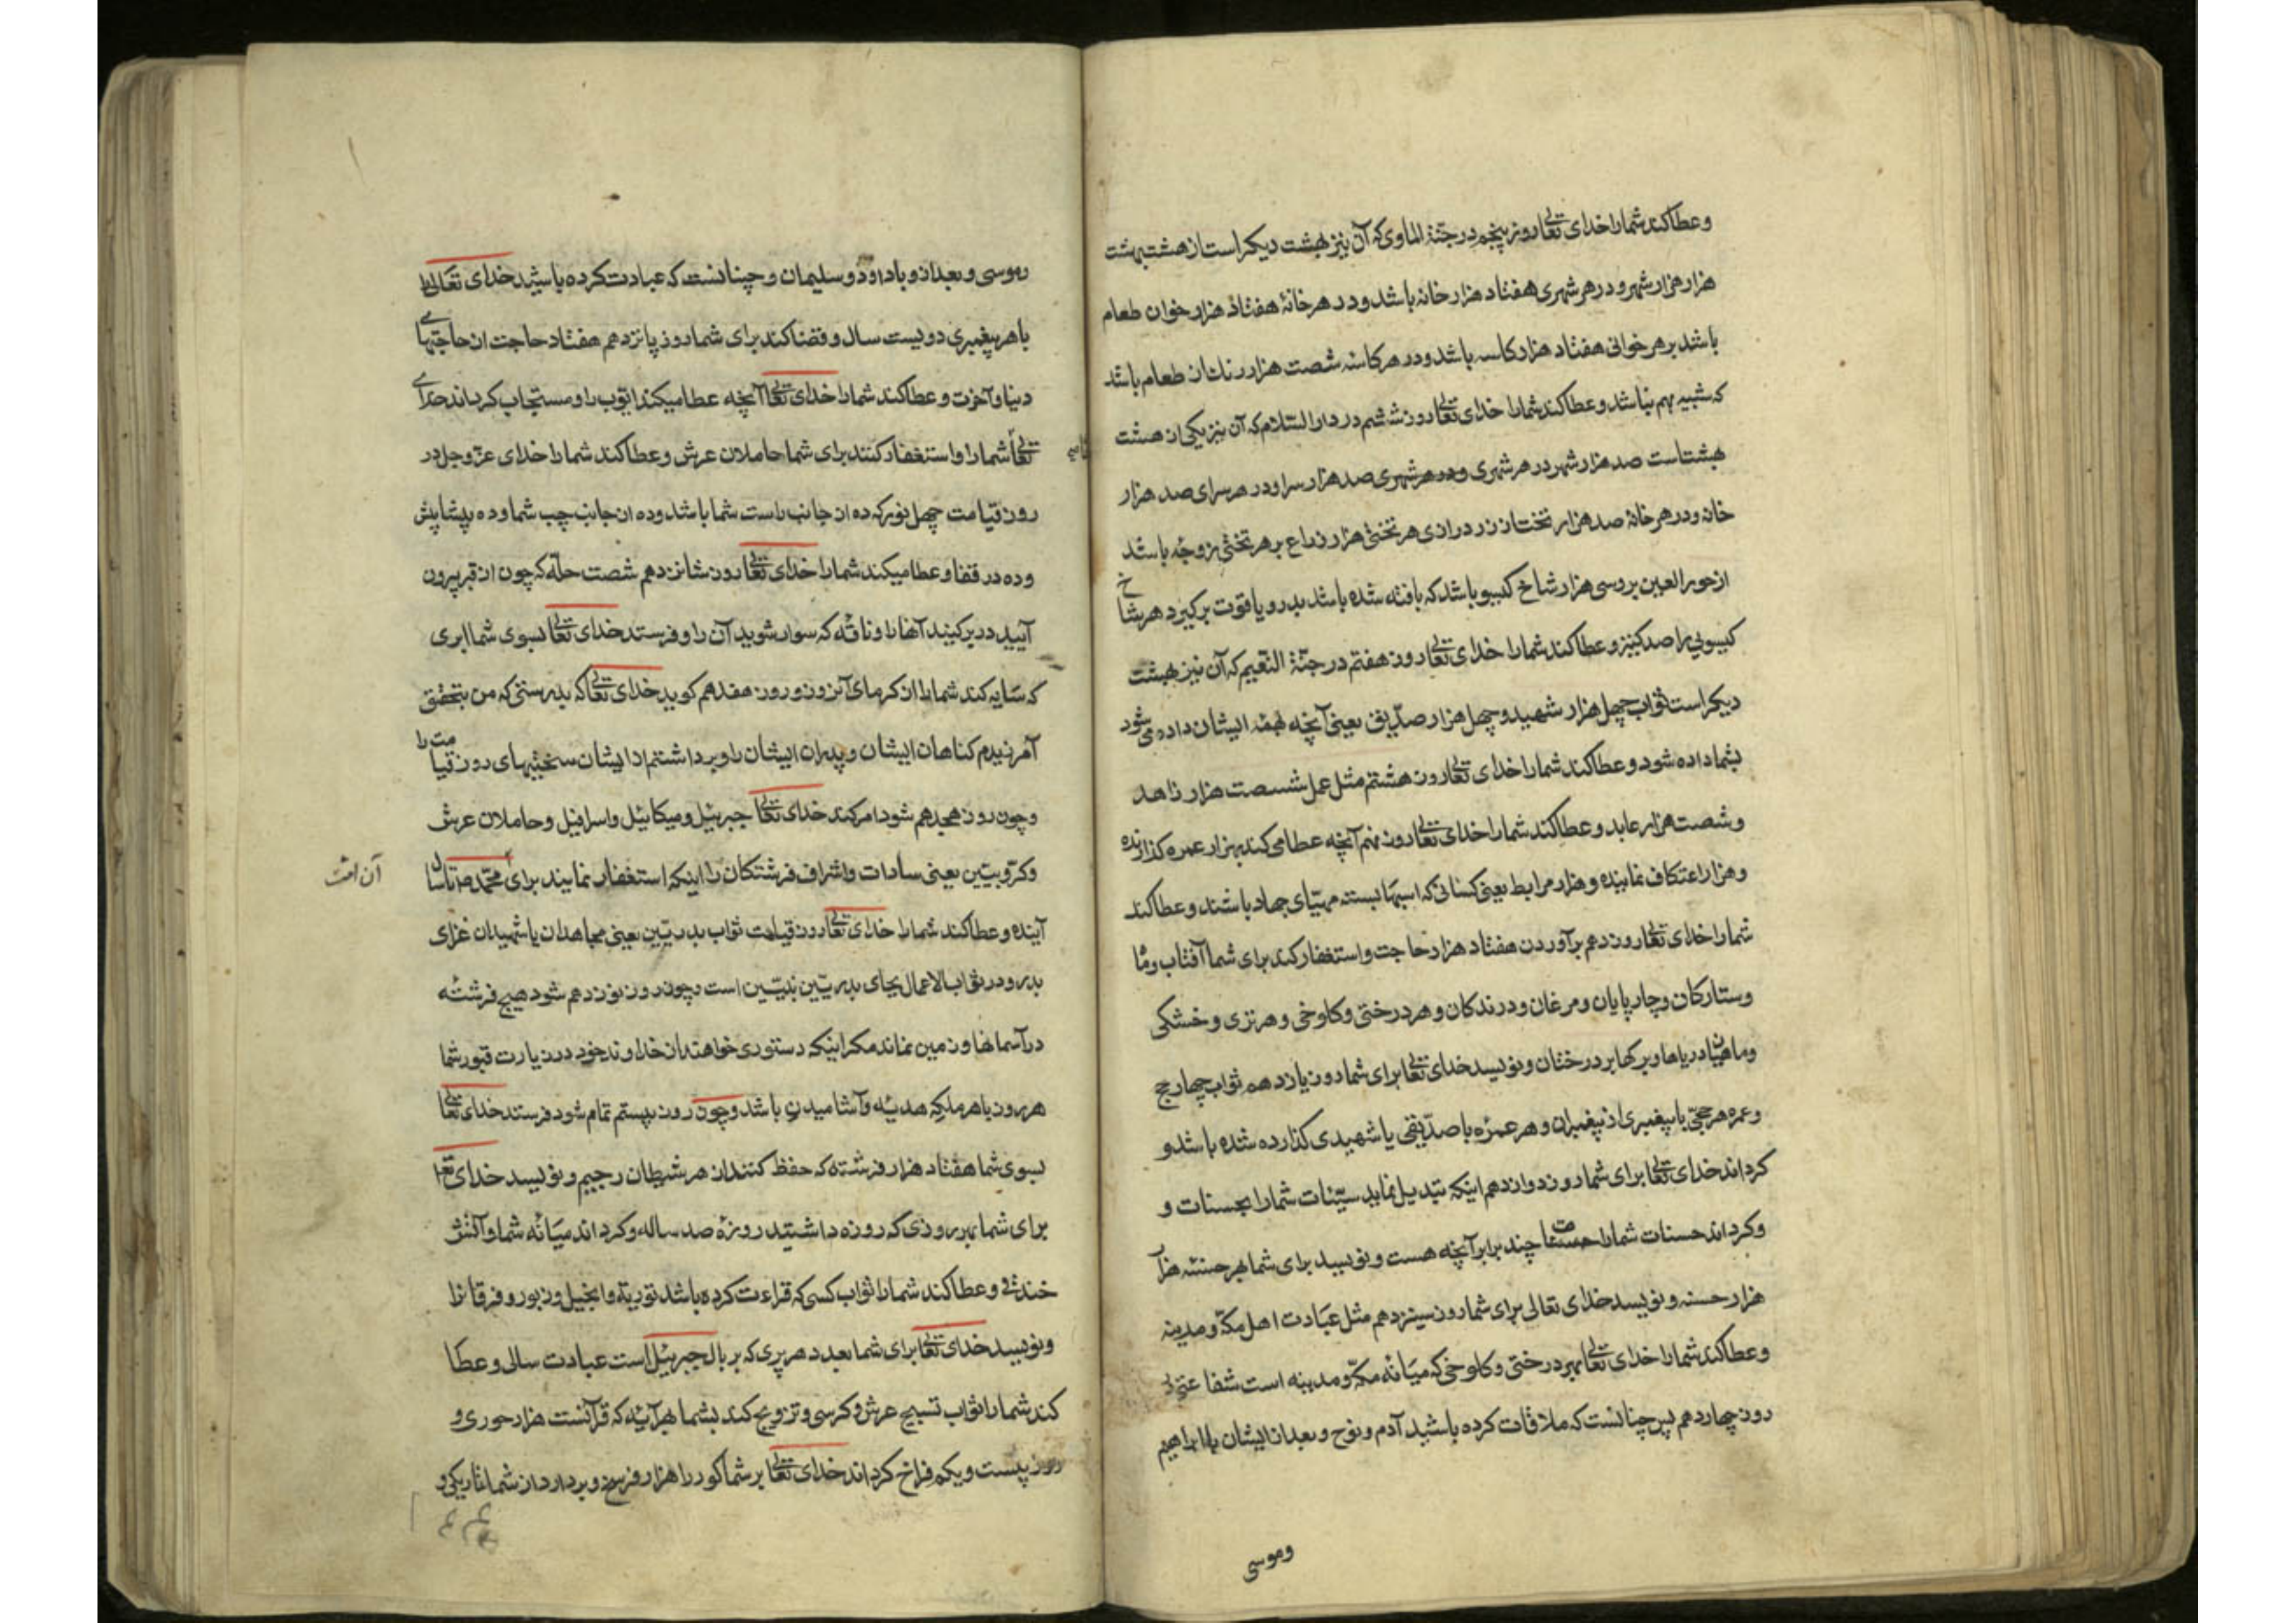 وعطا کند شما را خدای تعالی روز پنجم در جنّة الماوی که آن نیز بهشت دیکر است از هشت بهشت
هزار هزار شهر و در هر شهری هفتاد هزار خانه باشد و در هر خانهٔ هفتاد هزار خوان طعام
باشد بر هر خوانی هفتاد هزار کاسه باشد و در هر کاسهٔ شصت هزار رنك از طعام باشد
که شبیه بهم نباشد و عطا کند شما را خدای تعالی روز ششم در دار السّلام که آن نیز یکی از هشت
بهشت است صد هزار شهر در هر شهری و در هر شهری صد هزار سرا و در هر سرای صد هزار
خانه و در هر خانهٔ صد هزار تخت از زر درازی هر تختی هزار ذراع بر هر تختی زوجهٔ باشد
از حور العین بر وسی هزار شاخ کیسو باشد که بافته شده باشد بدر و یاقوت برکیرد هر شاخ
کیسویی را صد کنیز و عطا کند شما را خدای تعالی روز هفتم در جنّة النّعیم که آن نیز بهشت
دیکر است ثواب چهل هزار شهید و چهل هزار صدّیق یعنی آنچه بهمهٔ ایشان داده می شود
بشما داده شود و عطا کند شما را خدای تعالی روز هشتم مثل عمل شصت هزار زاهد
و شصت هزار عابد و عطا کند شما را خدای تعالی روز نهم آنچه عطا می کند بهزار عمره کذارنده
و هزار اعتکاف نماینده و هزار مرابط یعنی کسانی که اسبها بسته مهیّای جهاد باشند و عطا کند
شما را خدای تعالی روز دهم برآوردن هفتاد هزار حاجت و استغفار کند برای شما آفتاب و ماه
و ستارکان و چارپایان و مرغان و درندکان و هر درختی و کلوخی و هر تری و خشکی
و ماهیان دریاها و برکها بر درختان و نویسد خدای تعالی برای شما روز یازدهم ثواب چهار حج
و عمره هر حجّی با پیغمبری از پیغمبران و هر عمرهٔ با صدّیقی یا شهیدی کذارده شده باشد و
کرداند خدای تعالی برای شما روز دوازدهم اینکه تبدیل نماید سیّئات شما را بحسنات و
و کرداند حسنات شما را چند برابر آنچه هست و نویسد برای شما بهر حسنهٔ هزار
هزار حسنه و نویسد خدای تعالی برای شما روز سیزدهم مثل عبادت اهل مکّه و مدینه
و عطا کند شما را خدای تعالی بهر درختی و کلوخی که میانهٔ مکّه و مدینه است شفاعتی
روز چهاردهم پس چنانست که ملاقات کرده باشید آدم و نوح و بعد از ایشان با ابراهیم
وموسی
وموسی و بعد از و با داود و سلیمان و چنانست که عبادت کرده باشید خدای تعالی را
با هر پیغمبری دویست سال و قضا کند برای شما روز پانزدهم هفتاد حاجت از حاجتهای
دنیا و آخرت و عطا کند شما را خدای تعالی آنچه عطا میکند ایّوب را و مستجاب کرداند خدای
تعالی شما را و استغفار کنند برای شما حاملان عرش و عطا کند شما را خدای عزّ وجل در
روز قیامت چهل نور که ده از جانب راست شما باشد و ده از جانب چپ شما و ده پیشاپیش
و ده در قفا و عطا میکند شما را خدای تعالی روز شانزدهم شصت حلّه که چون از قبر بیرون
آیید در بر کنید آنها را و ناقهٔ که سوار شوید آن را و فرستد خدای تعالی بسوی شما ابری
که سایه کند شما را از کرمای آنروز و روز هفدهم کوید خدای تعالی که بدرستی که من بتحقیق
آمرزیدم کناهان ایشان و پدران ایشان را و برداشتم از ایشان سختیهای روز قیامت را
و چون روز هجدهم شود امر کند خدای تعالی جبرییل و میکاییل و اسرافیل و حاملان عرش
و کرّوبیّین یعنی سادات و اشراف فرشتکان را اینکه استغفار نمایند برای محمّد ص تا سال
آن امّت
آینده و عطا کند شما را خدای تعالی روز قیامت ثواب بدریّین یعنی مجاهدان یا شهیدان غزای
بدر و در ثواب الاعمال بجای بدریّین نبیّین است و چون روز نوزدهم شود هیچ فرشتهٔ
در آسمانها و زمین نماند مکر اینکه دستوری خواهند از خداوند خود در زیارت قبور شما
هر روز با هر ملکی هدیهٔ و آشامیدنی باشد و چون روز بیستم تمام شود فرستد خدای تعالی
بسوی شما هفتاد هزار فرشته که حفظ کنند از هر شیطان رجیم و نویسد خدای تعالی
برای شما بهر روزی که روزه داشتید روزهٔ صد ساله و کرداند میانهٔ شما و آتش
خندقی و عطا کند شما را ثواب کسی که قراءت کرده باشد توریة و انجیل و زبور و فرقانرا
و نویسد خدای تعالی برای شما بعدد هر پری که بر بال جبرییل است عبادت سالی و عطا
کند شما را ثواب تسبیح عرش و کرسی و تزویج کند بشما بهر آیهٔ که قرآنست هزار حوری و
روز بیست و یکم فراخ کرداند خدای تعالی بر شما کور را هزار فرسخ و بردارد از شما تاریکی و